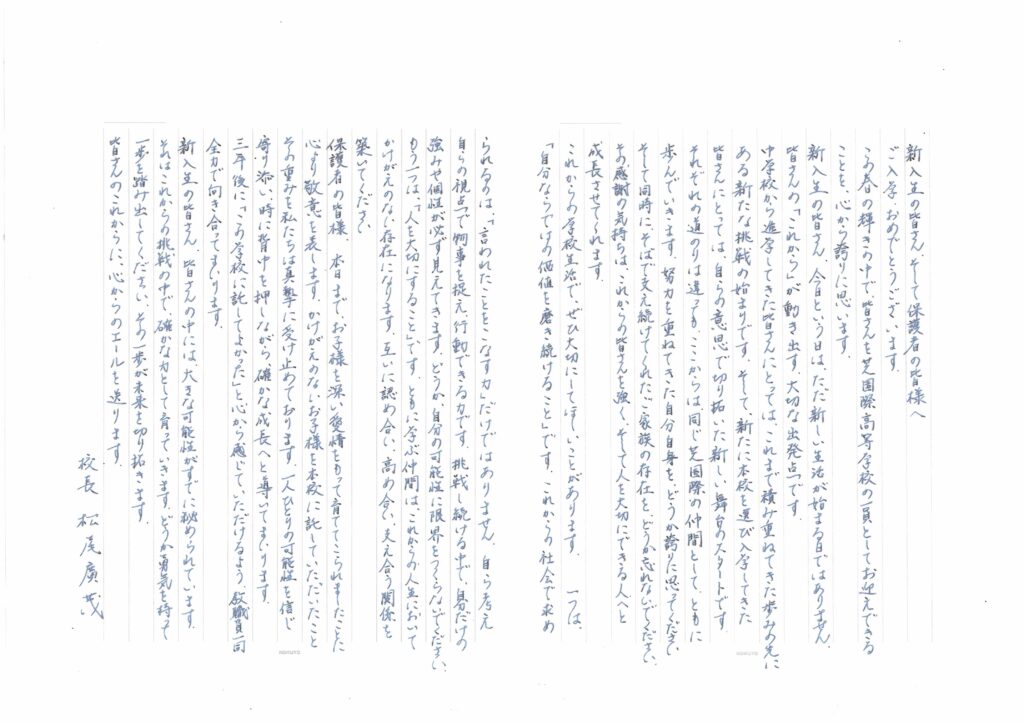 新入生の皆さん、そして保護者の皆様へ
ご入学、おめでとうございます。
この春の輝きの中で、皆さんを芝国際高等学校の一員としてお迎えできる
ことを、心から誇りに思います。
新入生の皆さん、今日という日は、ただ新しい生活が始まる日ではありません。
皆さんの「これから」が動き出す、大切な出発点です。
中学校から進学してきた皆さんにとっては、これまで積み重ねてきた歩みの先に
ある新たな挑戦の始まりです。そして、新たに本校を選び入学してきた
皆さんにとっては、自らの意思で切り拓いた新しい舞台のスタートです。
それぞれの道のりは違っても、ここからは同じ芝国際の仲間として、ともに
歩んでいきます。努力を重ねてきた自分自身を、どうか誇りに思ってください。
そして同時に、そばで支え続けてくれたご家族の存在を、どうか忘れないでください。
その感謝の気持ちは、これからの皆さんを強く、そして人を大切にできる人へと
成長させてくれます。
これからの学校生活で、ぜひ大切にしてほしいことがあります。 一つは、
「自分ならではの価値を磨き続けること」です。これからの社会で求め
られるのは、「言われたことをこなす力」だけではありません。自ら考え
自らの視点で物事を捉え、行動できる力です。挑戦し続ける中で、自分だけの
強みや個性が必ず見えてきます。どうか、自分の可能性に限界をつくらないでください。
もう一つは、「人を大切にすること」です。ともに学ぶ仲間は、これからの人生において
かけがえのない存在になります。互いに認め合い、高め合い、支え合う関係を
築いてください。
保護者の皆様、本日まで、お子様を深い愛情をもって育ててこられましたことに
心より敬意を表します。かけがえのないお子様を本校に託していただいたこと
その重みを私たちは真摯に受け止めております。一人ひとりの可能性を信じ
寄り添い、時に背中を押しながら、確かな成長へと導いてまいります。
三年後に、「この学校に託してよかった」と心から感じていただけるよう、教職員一同
全力で向き合ってまいります。
新入生の皆さん、皆さんの中には、大きな可能性がすでに秘められています。
それはこれからの挑戦の中で、確かな力として育っていきます。どうか勇気を持って
一歩を踏み出してください。その一歩が未来を切り拓きます。
皆さんのこれからに、心からのエールを送ります。
校長 松尾廣茂
KOKUYO
KOKUYO